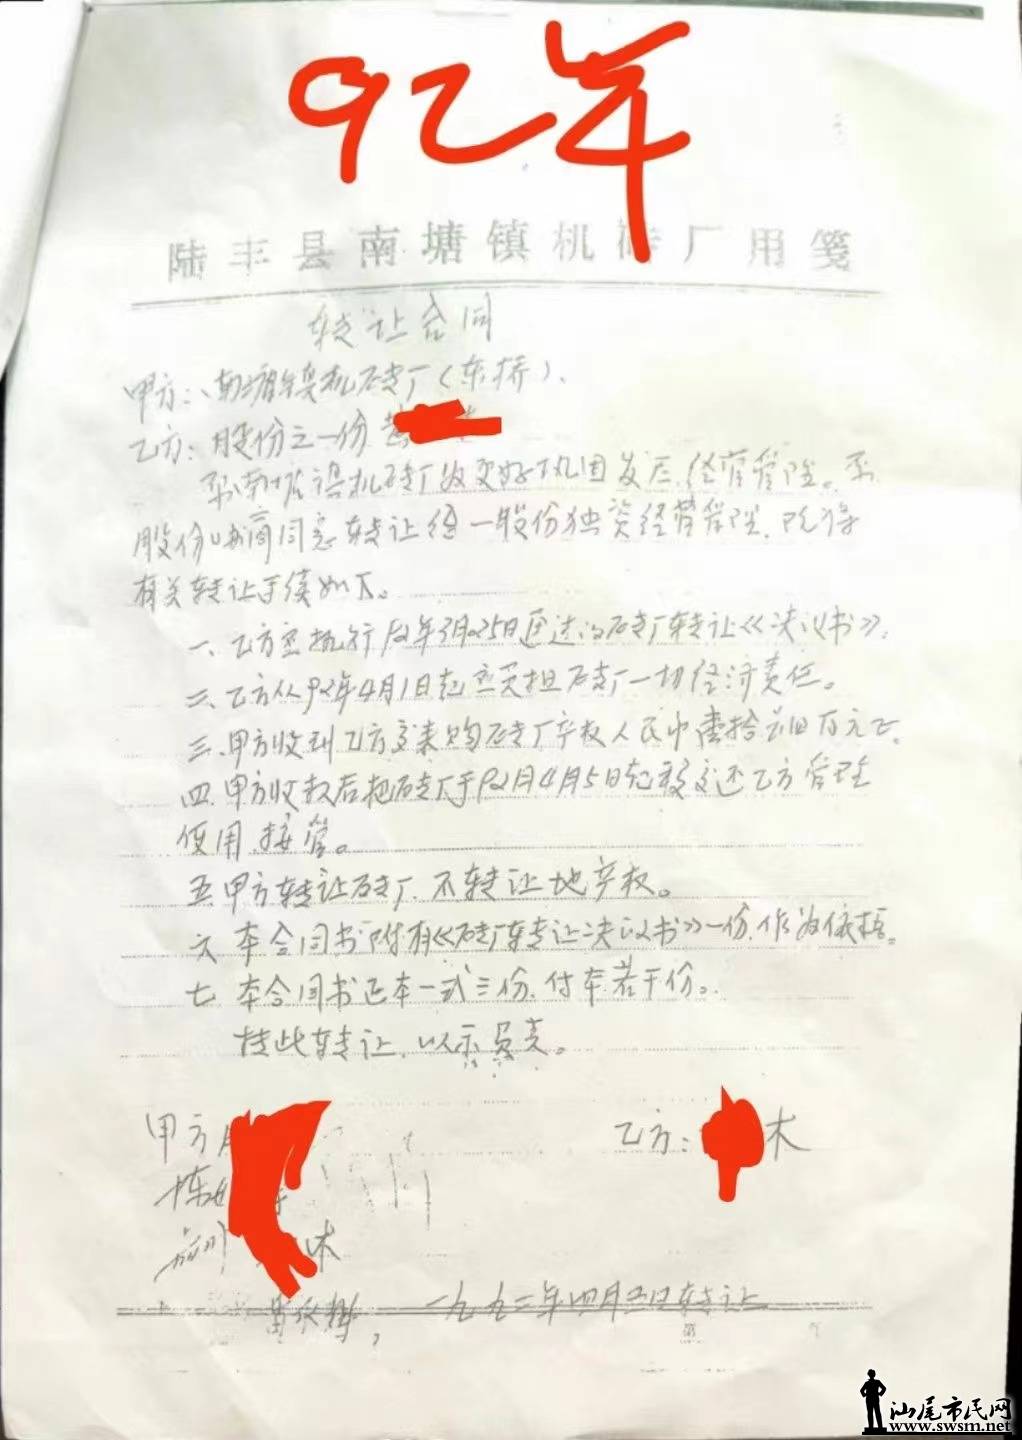 92年
陆丰县南塘镇机砖厂用笺
转让合同
甲方:南塘镇机砖厂(东桥).
乙方:股份之一份
南塘镇机砖厂为更好巩固发展,经营管理。
股份协商同意转让给一股份独资经营管理,
有关转让手续如下。
一、乙方应执行92年3月25日通过的砖厂转让《决议书》.
二、乙方从92年4月1日起应负担砖厂一切经济责任。
三、甲方收到乙方交来购砖厂产权人民币壹拾
四.甲方收款后把砖厂于92月4月5日起移交还乙方管理
使用、接管。
五.甲方转让砖厂.不转让地产权。
六 本合同书附有《砖厂转让决议书》一份.作为依据。
七 本合同书正本一式三份.付本若干份。
特此转让.以示负责。
甲方
乙方: 木
陈
木
一九九二年四月五日转让
第
汕尾市民网
www.swsm.net